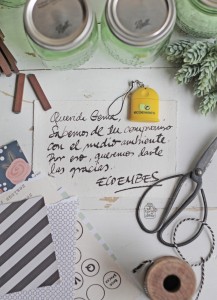 Querida Gema,
Sabemos de tu compromiso
con el medio ambiente.
Por eso, queremos darte
las gracias.
ECOEMBES